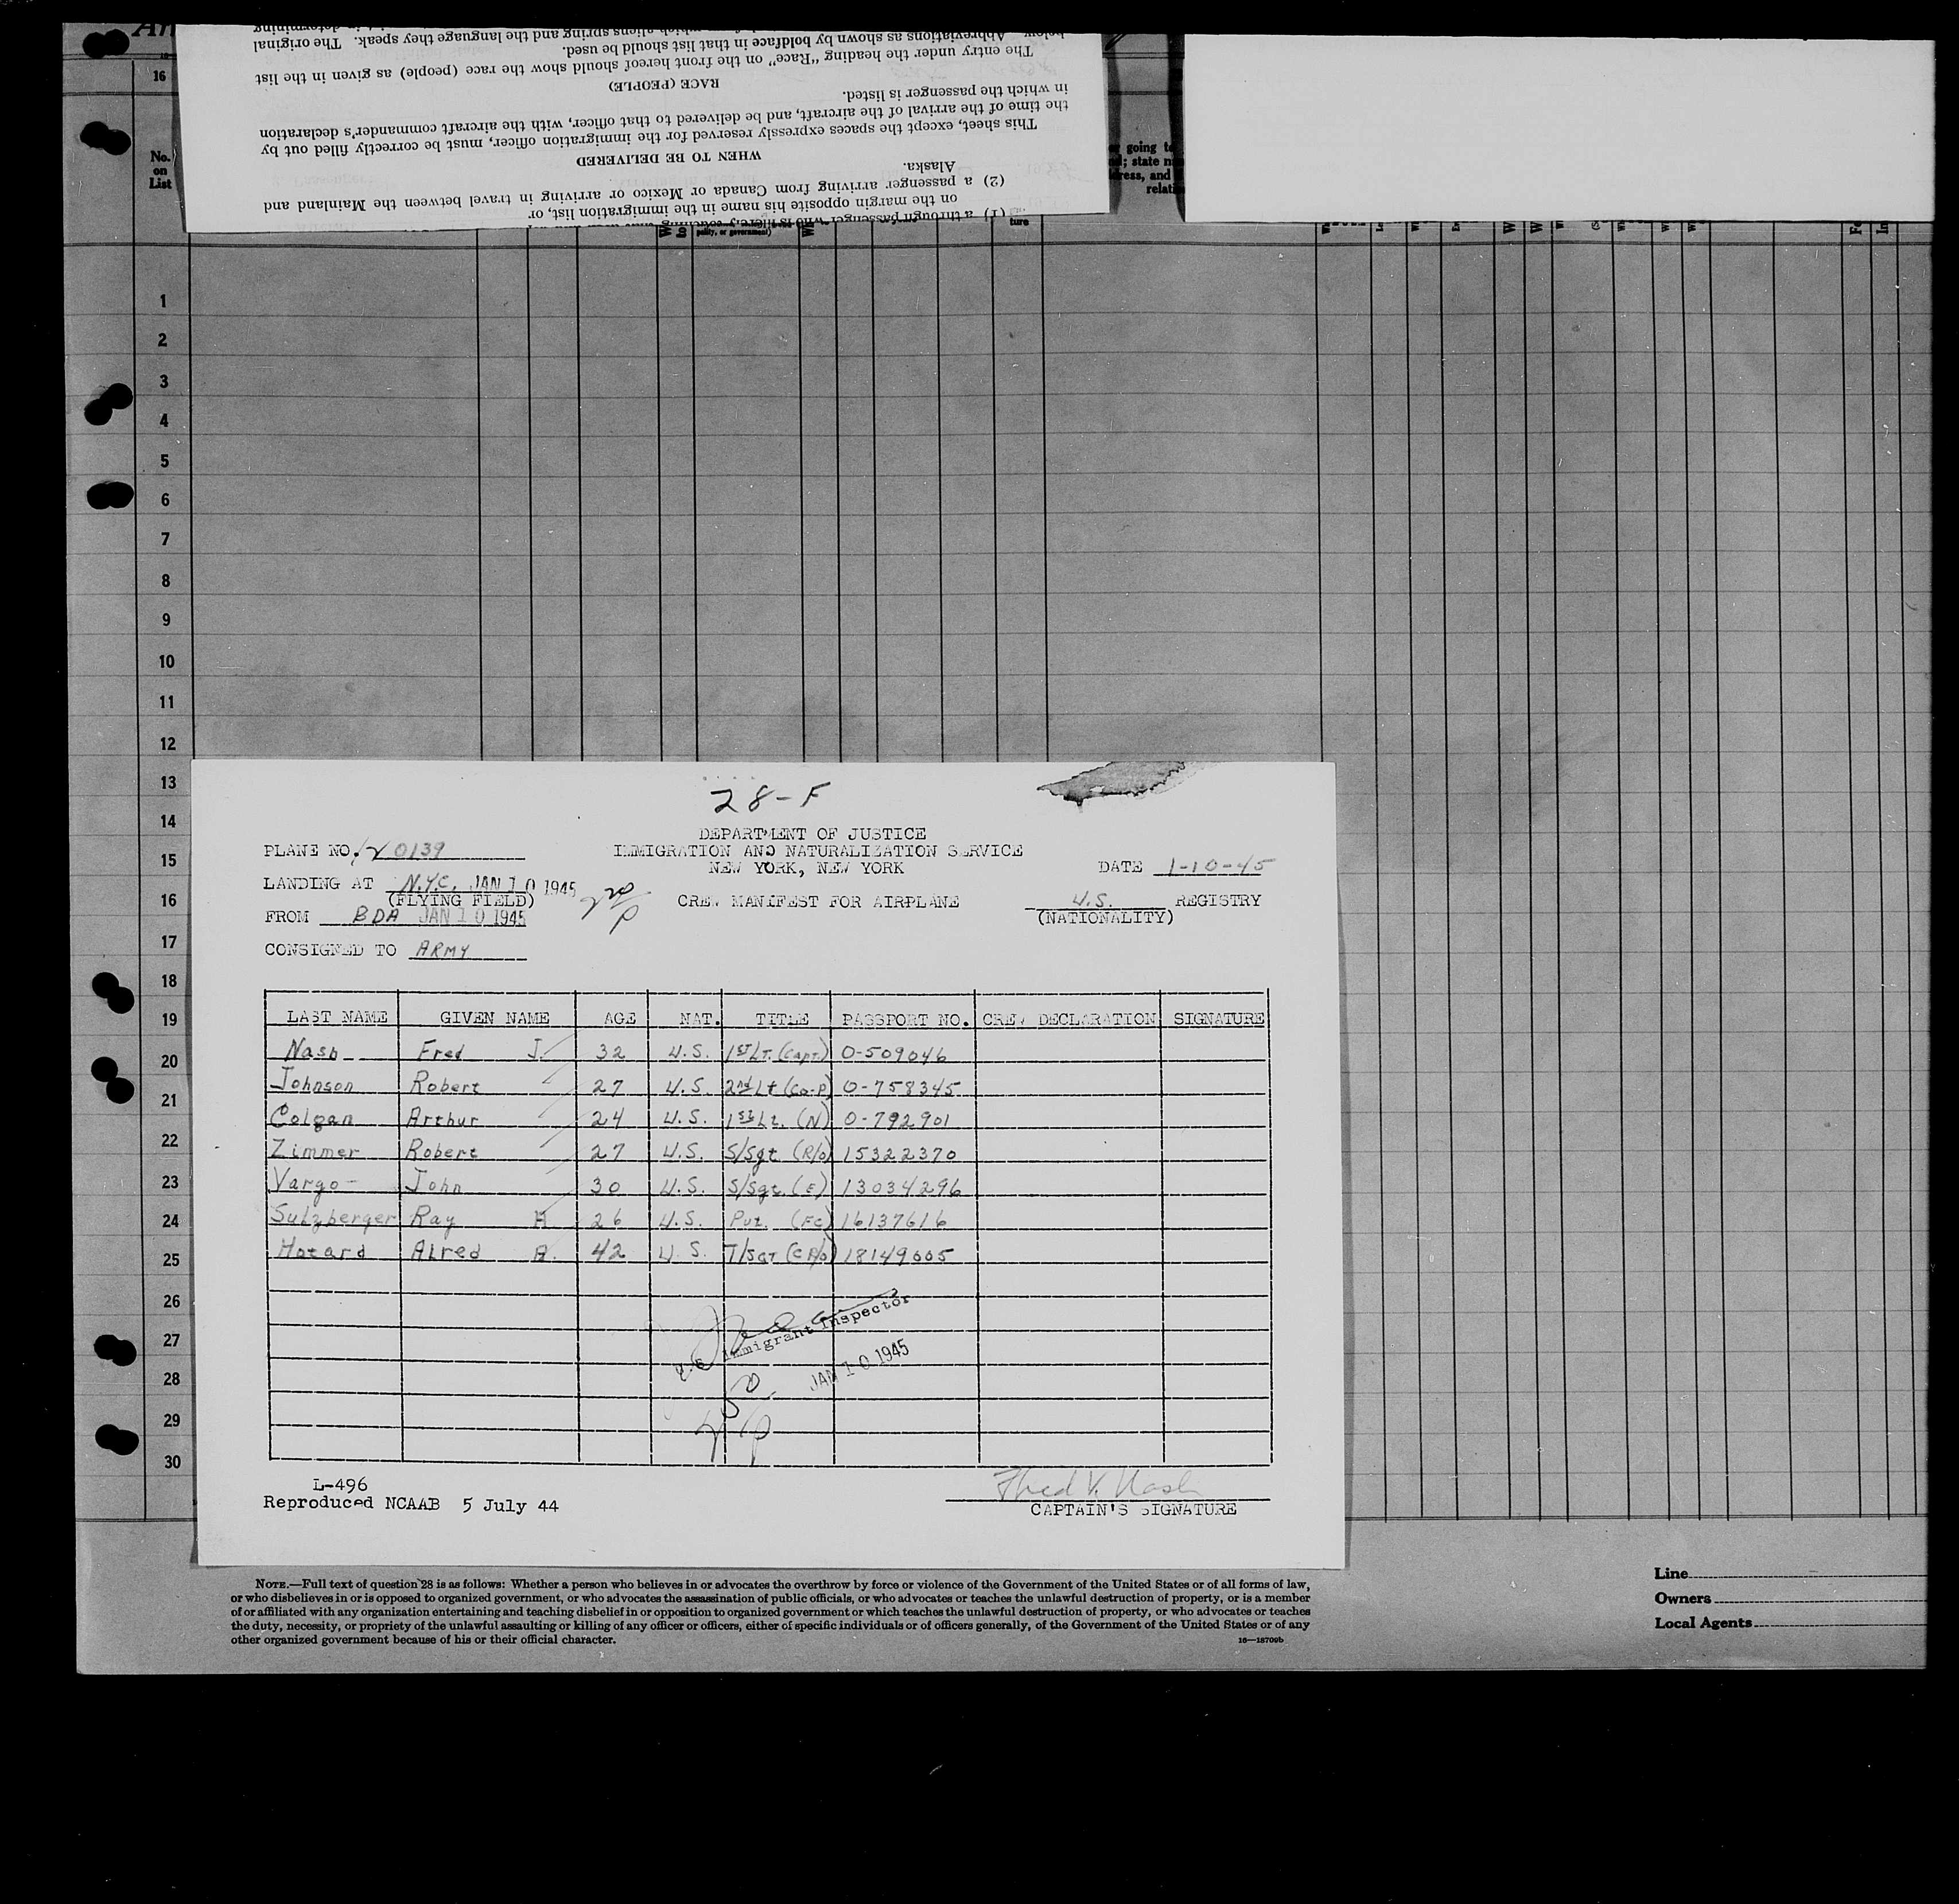 16
No.
on
List
below. Abbreviations as shown by boldface in that list should be used.
The entry under the heading "Race" on the front hereof should show the race (people) as given in the list
RACE (PEOPLE)
in which the passenger is listed.
the time of the arrival of the aircraft, and be delivered to that officer, with the aircraft commander's declaration
This sheet, except the spaces expressly reserved for the immigration officer, must be correctly filled out by
WHEN TO BE DELIVERED
Alaska.
(2) a passenger arriving from Canada or Mexico or arriving in travel between the Mainland and
on the margin opposite his name in the immigration list, or
going to
; state
ress, and
relati
pality, or government)
ture
1
2
3
4
5
6
7
8
9
10
11
12
13
14
15
16
17
18
19
20
21
22
23
24
25
26
27
28
29
30
28-F
DEPARTMENT OF JUSTICE
IMMIGRATION AND NATURALIZATION SERVICE
NEW YORK, NEW YORK
PLANE NO. 0139
DATE 1-10-45
LANDING AT N.Y.C. JAN 10 1945
(FLYING FIELD)
CREW MANIFEST FOR AIRPLANE
U.S. REGISTRY
(NATIONALITY)
FROM BDA JAN 10 1945
CONSIGNED TO ARMY
LAST NAME GIVEN NAME AGE NAT. TITLE PASSPORT NO. CREW DECLARATION SIGNATURE
Nash Fred J. 32 U.S. 1ST LT. (Capt.) O-509046
Johnson Robert 27 U.S. 2nd Lt (Co-P) O-758345
Colgan Arthur 24 U.S. 1st Lt. (N) O-792901
Zimmer Robert 27 U.S. S/Sgt (R/O) 15322370
Vargo John 30 U.S. S/Sgt. (E) 13034296
Sulzberger Ray H 26 U.S. Pvt. (FC) 16137616
Hotard Alred A. 42 U.S. T/SGT 18149005
U.S. Immigrant Inspector
JAN 10 1945
L-496
Reproduced NCAAB 5 July 44
Fred V. Nash
CAPTAIN'S SIGNATURE
NOTE.—Full text of question 28 is as follows: Whether a person who believes in or advocates the overthrow by force or violence of the Government of the United States or of all forms of law,
or who disbelieves in or is opposed to organized government, or who advocates the assassination of public officials, or who advocates or teaches the unlawful destruction of property, or is a member
of or affiliated with any organization entertaining and teaching disbelief in or opposition to organized government or which teaches the unlawful destruction of property, or who advocates or teaches
the duty, necessity, or propriety of the unlawful assaulting or killing of any officer or officers, either of specific individuals or of officers generally, of the Government of the United States or of any
other organized government because of his or their official character.
16—18709b
Line
Owners
Local Agents